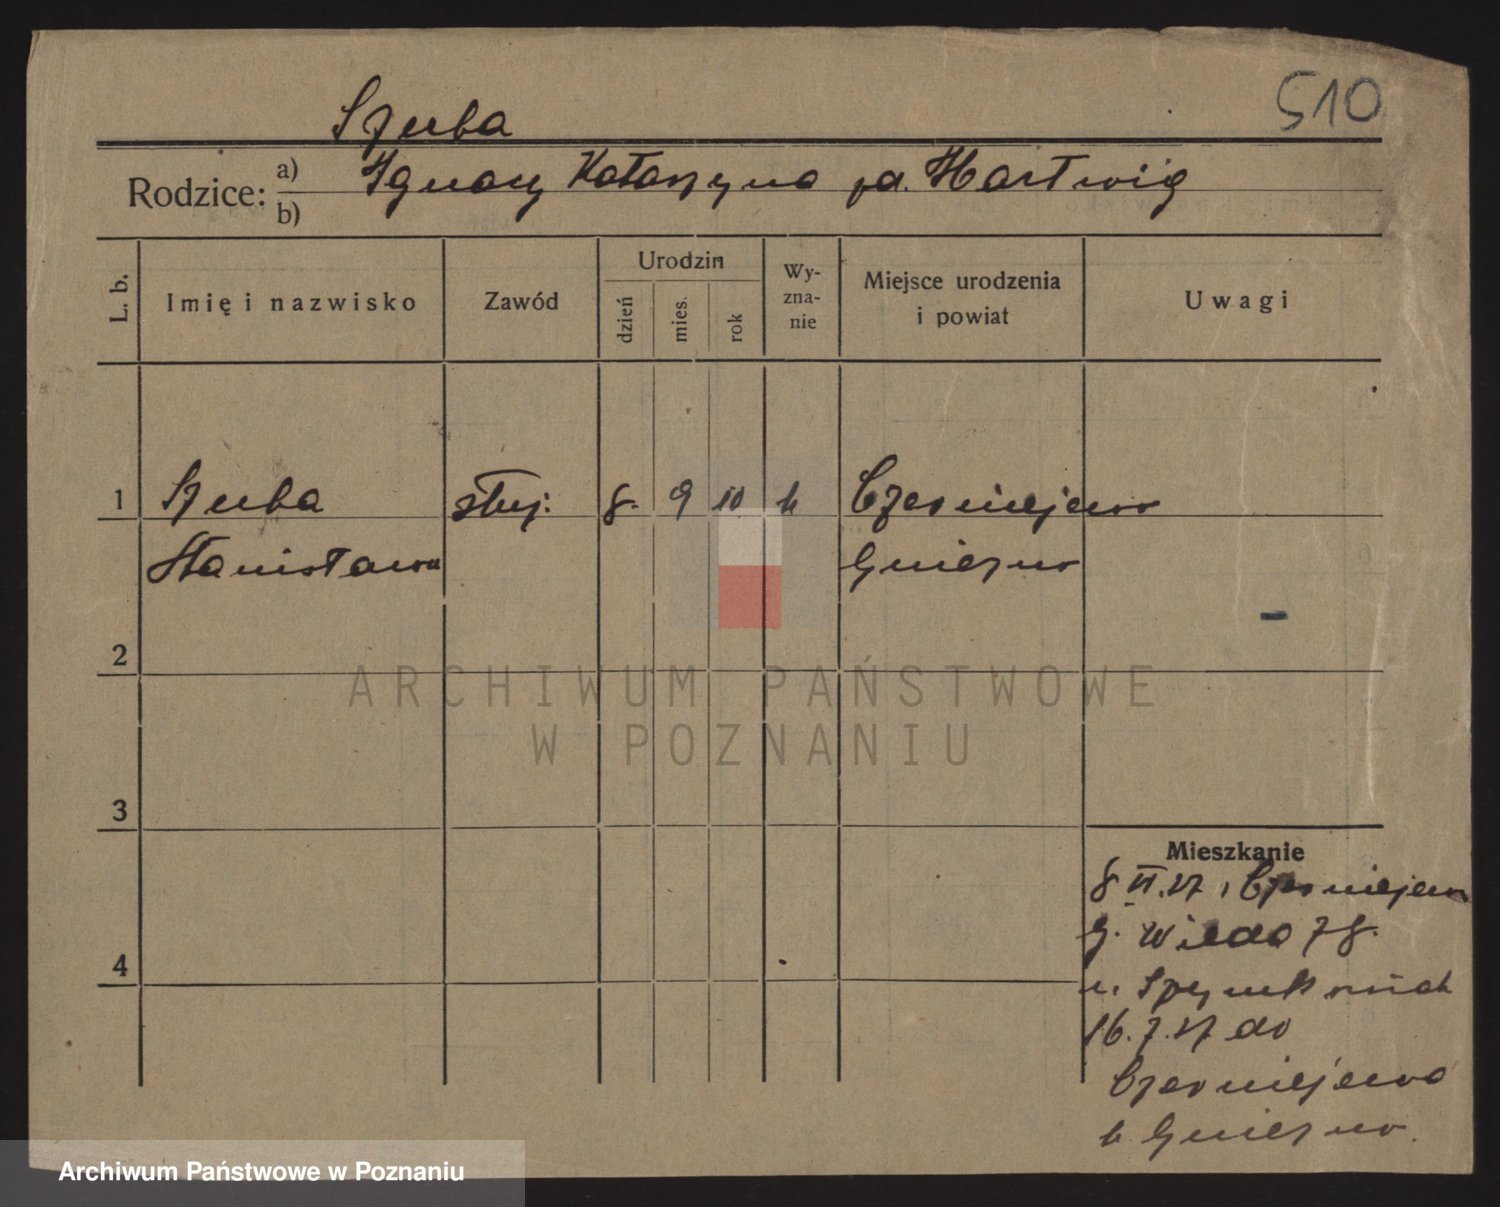 510
Szuba
Rodzice: a) Ignacy Katarzyna zd. Hartwig
b)
L. b. Imię i nazwisko Zawód Urodzin dzień mies. rok Wyznanie Miejsce urodzenia i powiat Uwagi
1 Szuba służ. 8. 9 10 k Czerniejewo
Stanisława Gniezno
2
3
Mieszkanie
8 VI.27 z Czerniejewa
G. Wilda 78.
4
u.
16.7.27 do
Czerniejewa
k Gniezno.
ARCHIWUM PAŃSTWOWE
W POZNANIU
Archiwum Państwowe w Poznaniu